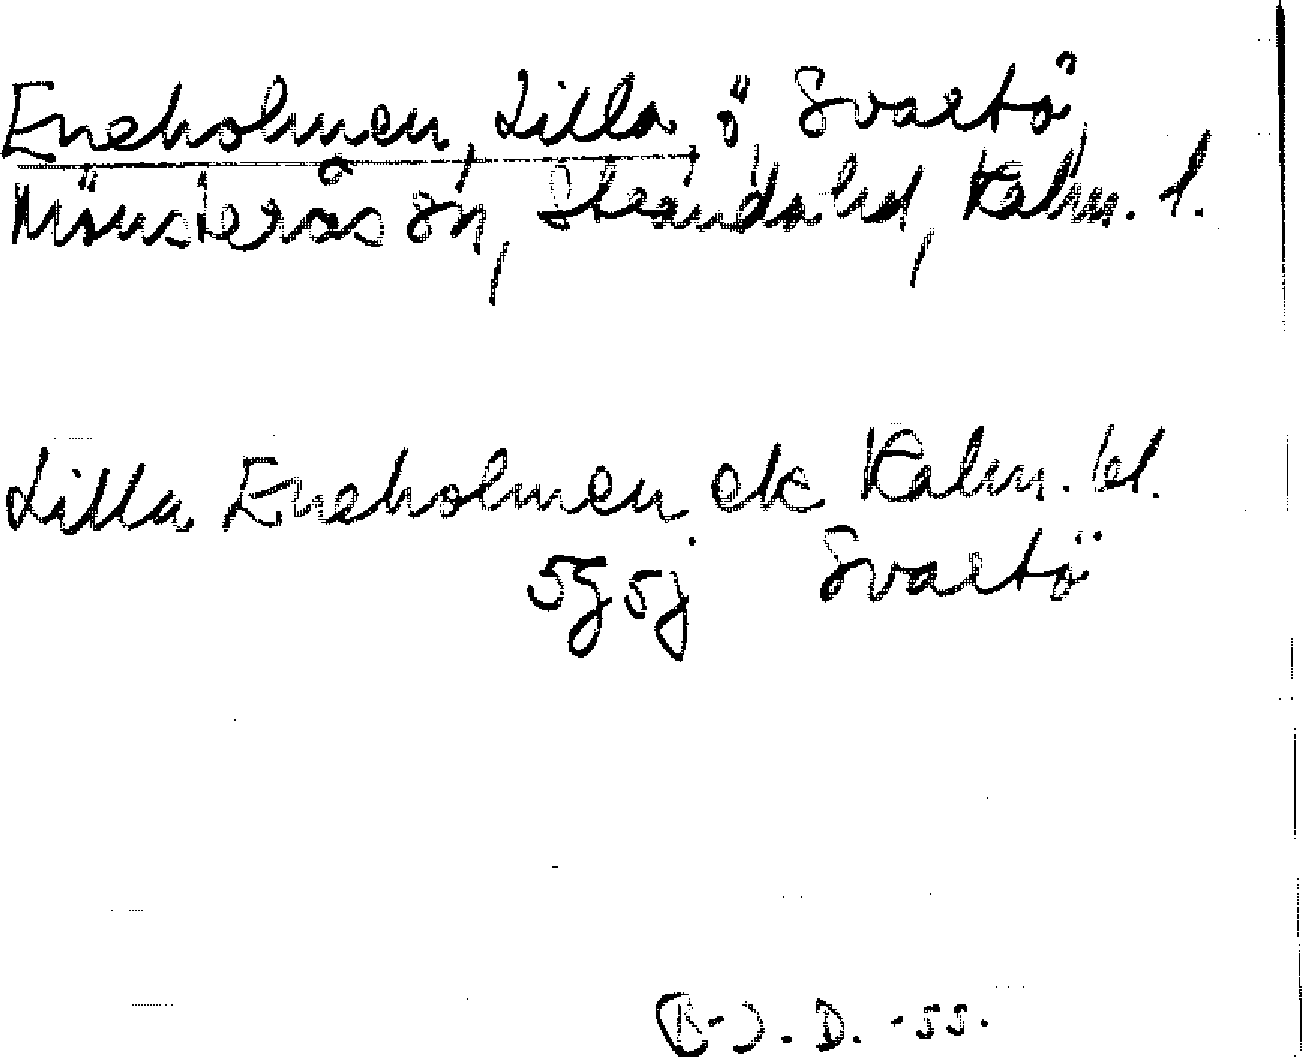 Eneholmen, Lilla ö Svartö,
Mönsterås sn, Stranda hd, Kalm. l.
Lilla Eneholmen ek Kalm. bl.
5g5j Svartö
D. -55.